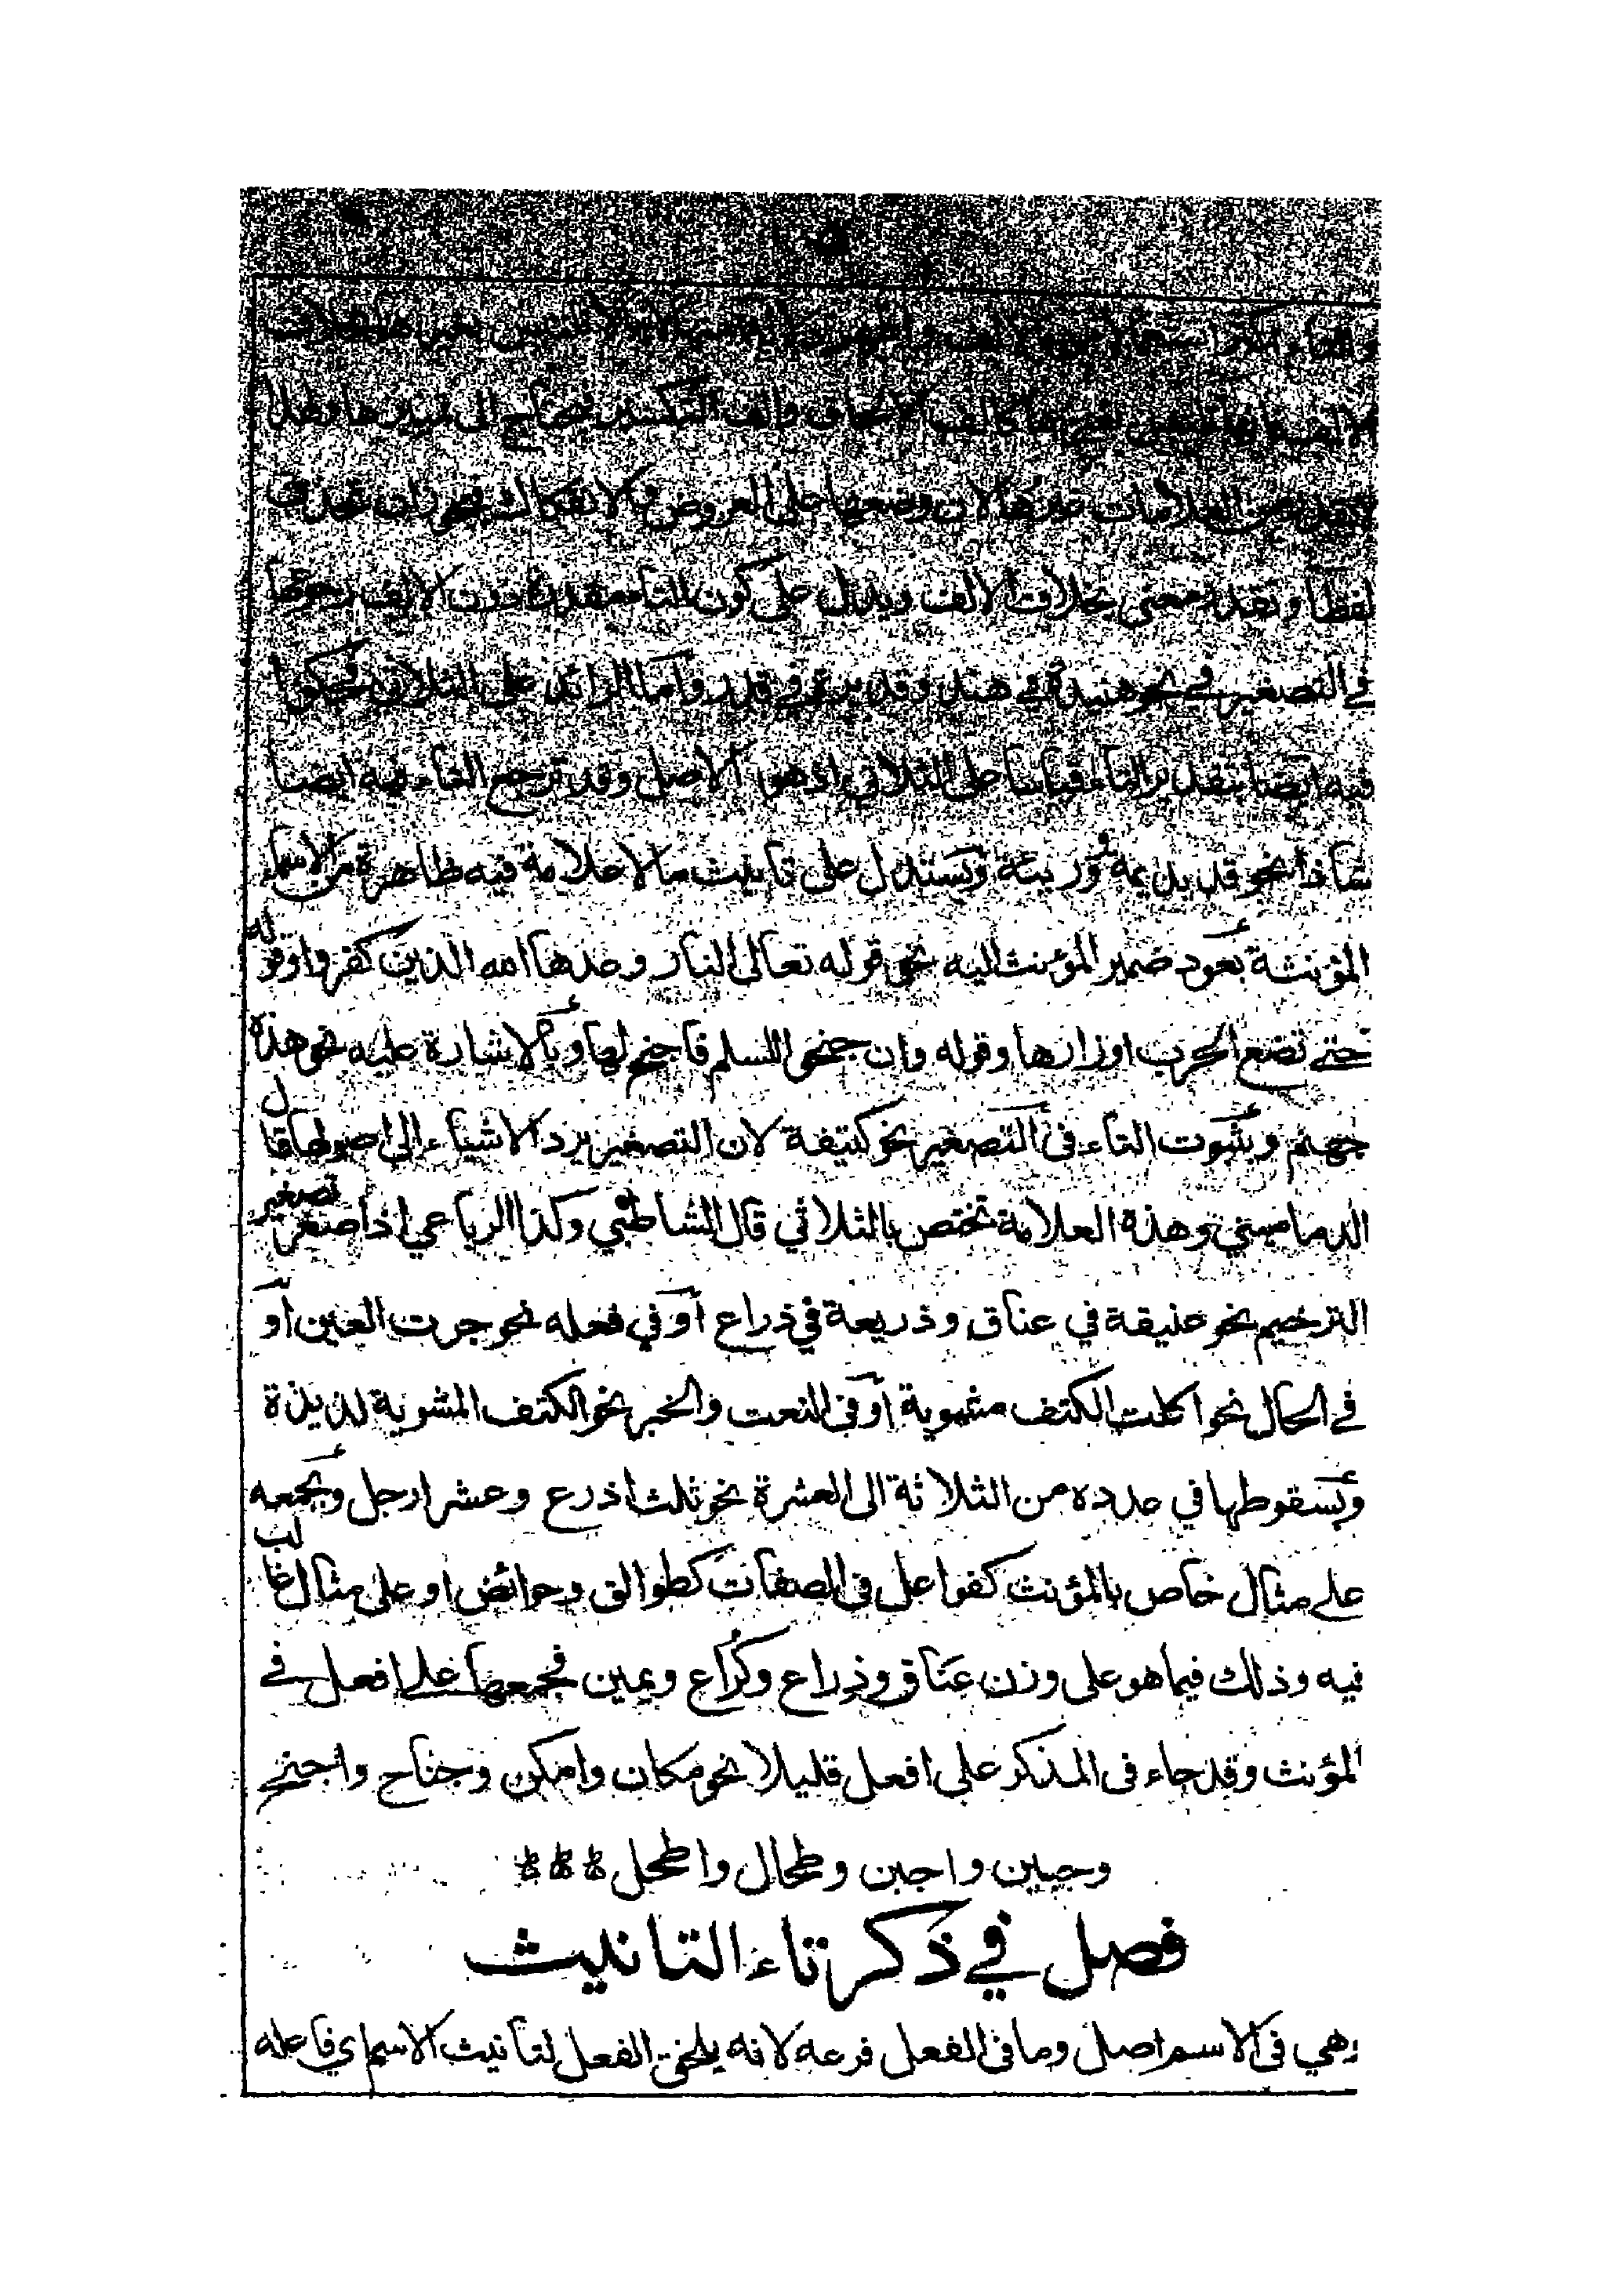 والتاء اكثر استعمالا من الالف
كالف الالحاق والف التكسير فيحتاج الى تمييزها ولهذا
العلامات غيرها لان وضعها على العروض والانفكاك فيجوز ان تحذف
لفظا وتقدر معنى بخلاف الالف ويدل على كون التاء مقدرة دون الالف رجوعها
في التصغير في نحو هنيدة في هند وقديرة في قدر واما الزائد على الثلاثي فحكموا
فيه ايضا بتقدير التاء قياسا على الثلاثي اذ هو الاصل وقد ترجع التاء فيه ايضا
شاذا نحو قديديمة ووريئة ويستدل على تانيث ما لا علامة فيه ظاهرة من الاسماء
المؤنثة بعود ضمير المؤنث اليه نحو قوله تعالى النار وعدها الله الذين كفروا وقوله
حتى تضع الحرب اوزارها وقوله وان جنحوا للسلم فاجنح لها وبالاشارة عليه نحو هذه
جهنم وبثبوت التاء في التصغير نحو كتيفة لان التصغير يرد الاشياء الى اصولها قال
الدماميني وهذة العلامة تختص بالثلاثي قال الشاطبي وكذا الرباعي اذا صغر تصغير
الترخيم نحو عنيقة في عناق وذريعة في ذراع او في فعله نحو جرت العين او
في الحال نحو اكلت الكتف مشوية او في النعت والخبر نحو الكتف المشوية لذيذة
وبسقوطها في عدده من الثلاثة الى العشرة نحو ثلث اذرع وعشر ارجل وبجمعه
على مثال خاص بالمؤنث كفواعل في الصفات كطوالق وحوائض او على مثال غالب
فيه وذلك فيما هو على وزن عناق وذراع وكراع ويمين فجمعها على افعل في
المؤنث وقد جاء في المذكر على افعل قليلا نحو مكان وامكن وجناح واجنح
وجبين واجبن وطحال واطحل
فصل في ذكر تاء التانيث
وهي في الاسم اصل وما في الفعل فرعه لانه يلحق الفعل لتانيث الاسم اي فاعله